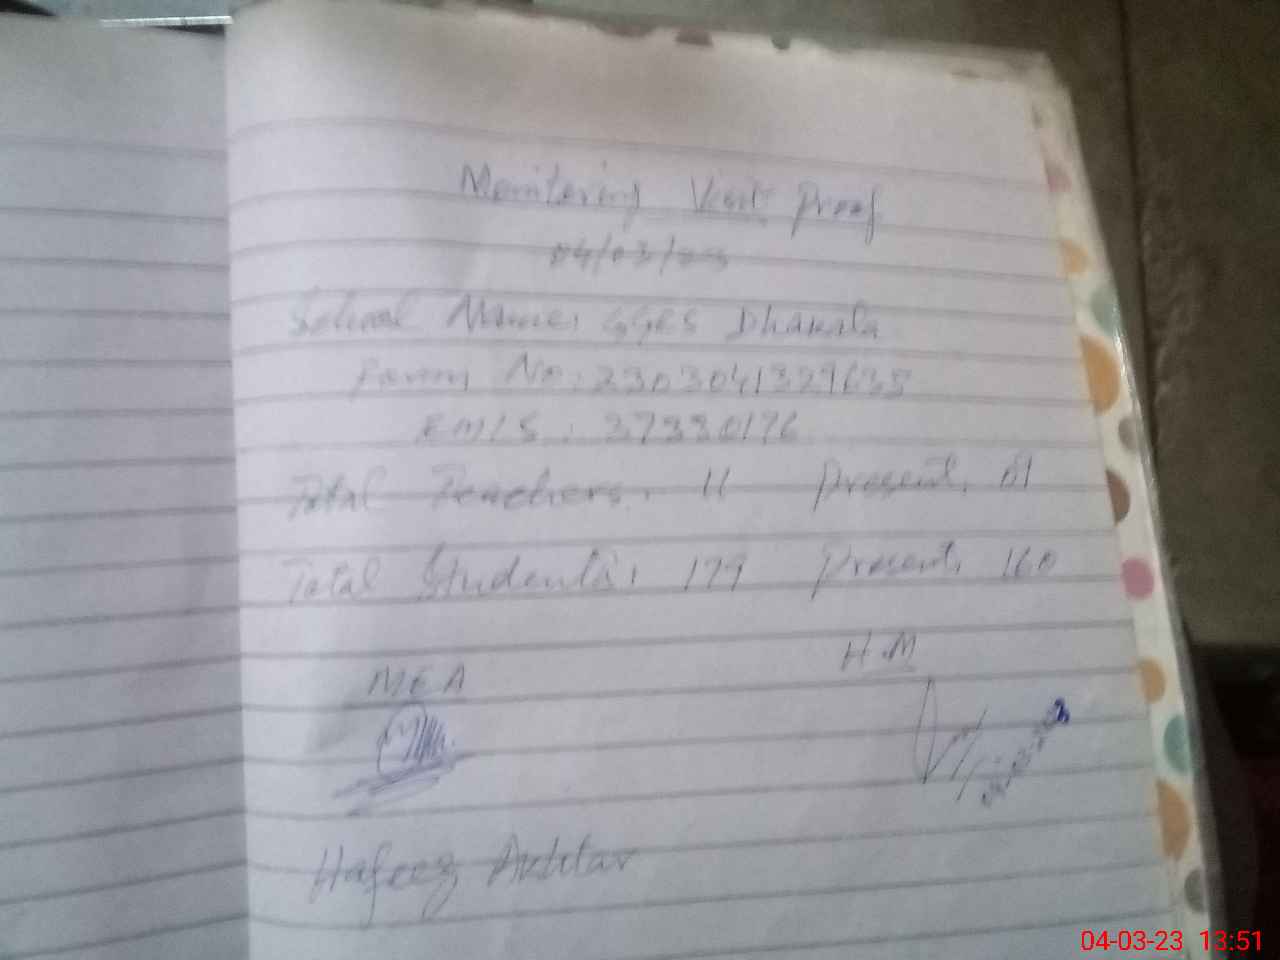 Monitoring Visit Proof
04/03/23
School Name: GGES Dhakala
Form No: 2303041329635
EMIS: 37330176
Total Teachers: 11 Present: 01
Total Students: 179 Present: 160
MEA H.M
Hafeez Akhtar
04-03-23 13:51